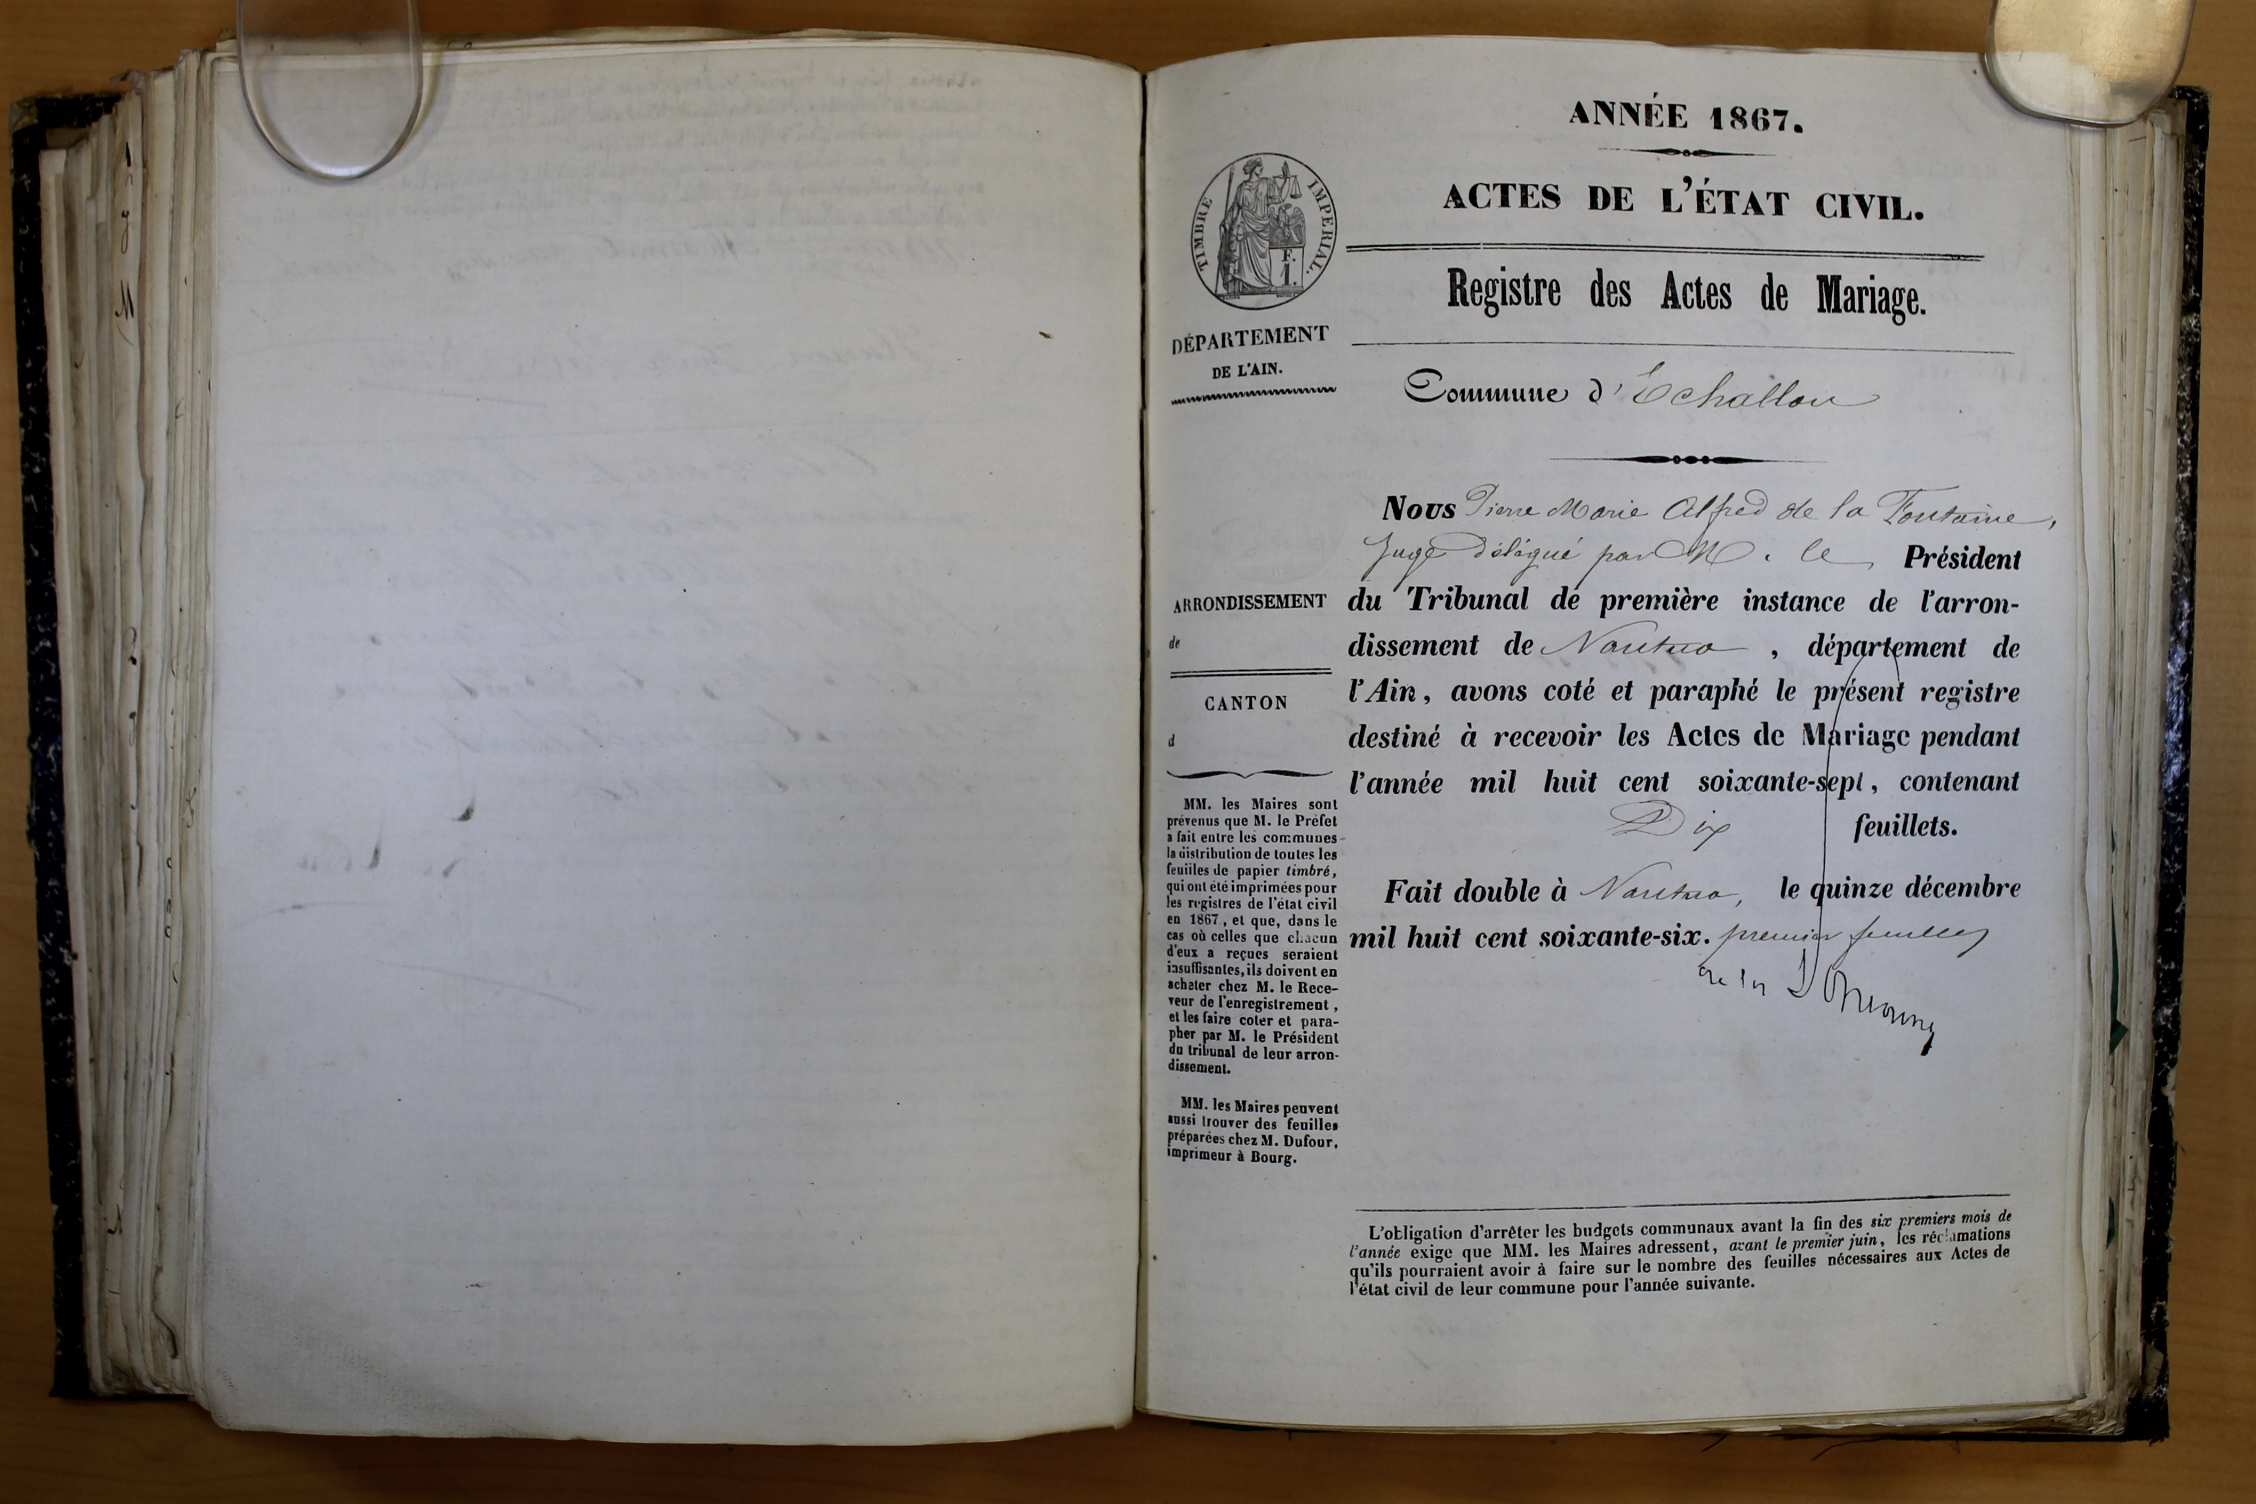 ANNÉE 1867.
ACTES DE L'ÉTAT CIVIL.
TIMBRE IMPÉRIAL.
F.
1.
Registre des Actes de Mariage.
DÉPARTEMENT
DE L'AIN.
Commune d'Echallon
Nous Pierre Marie Alfred de la Fontaine,
Juge délégué par M. le Président
du Tribunal de première instance de l'arron-
dissement de Nantua, département de
l'Ain, avons coté et paraphé le présent registre
destiné à recevoir les Actes de Mariage pendant
l'année mil huit cent soixante-sept, contenant
Dix feuillets.
Fait double à Nantua, le quinze décembre
mil huit cent soixante-six. premier feuillet
ARRONDISSEMENT
de
CANTON
d
MM. les Maires sont
prévenus que M. le Préfet
a fait entre les communes
la distribution de toutes les
feuilles de papier timbré,
qui ont été imprimées pour
les registres de l'état civil
en 1867, et que, dans le
cas où celles que chacun
d'eux a reçues seraient
insuffisantes, ils doivent en
acheter chez M. le Rece-
veur de l'enregistrement,
et les faire coter et para-
pher par M. le Président
du tribunal de leur arron-
dissement.
MM. les Maires peuvent
aussi trouver des feuilles
préparées chez M. Dufour,
imprimeur à Bourg.
L'obligation d'arrêter les budgets communaux avant la fin des six premiers mois de
l'année exige que MM. les Maires adressent, avant le premier juin, les réclamations
qu'ils pourraient avoir à faire sur le nombre des feuilles nécessaires aux Actes de
l'état civil de leur commune pour l'année suivante.